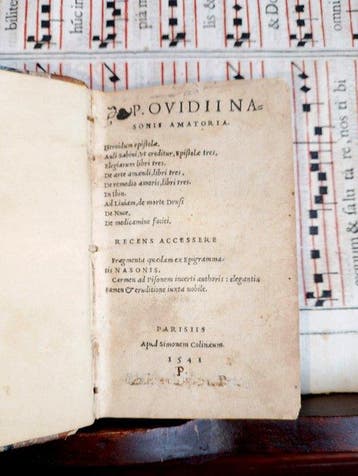 bilite
hũc in
piá m
lis &
P. OVIDII NA-
SONIS AMATORIA.
Heroidum epistolæ,
Auli Sabini, vt creditur, Epistolæ tres,
Elegiarum libri tres,
De arte amandi, libri tres,
De remedio amoris, libri tres.
In Ibin.
Ad Liuiam, de morte Drusi
De Nuce,
De medicamine faciei.
RECENS ACCESSERE
Fragmenta quædam ex Epigramma-
tis NASONIS.
Carmen ad Pisonem incerti authoris: elegantia
tamen & eruditione iuxta nobile.
PARISIIS
Apud Simonem Colinæum.
1541
P. P
nos ti bi